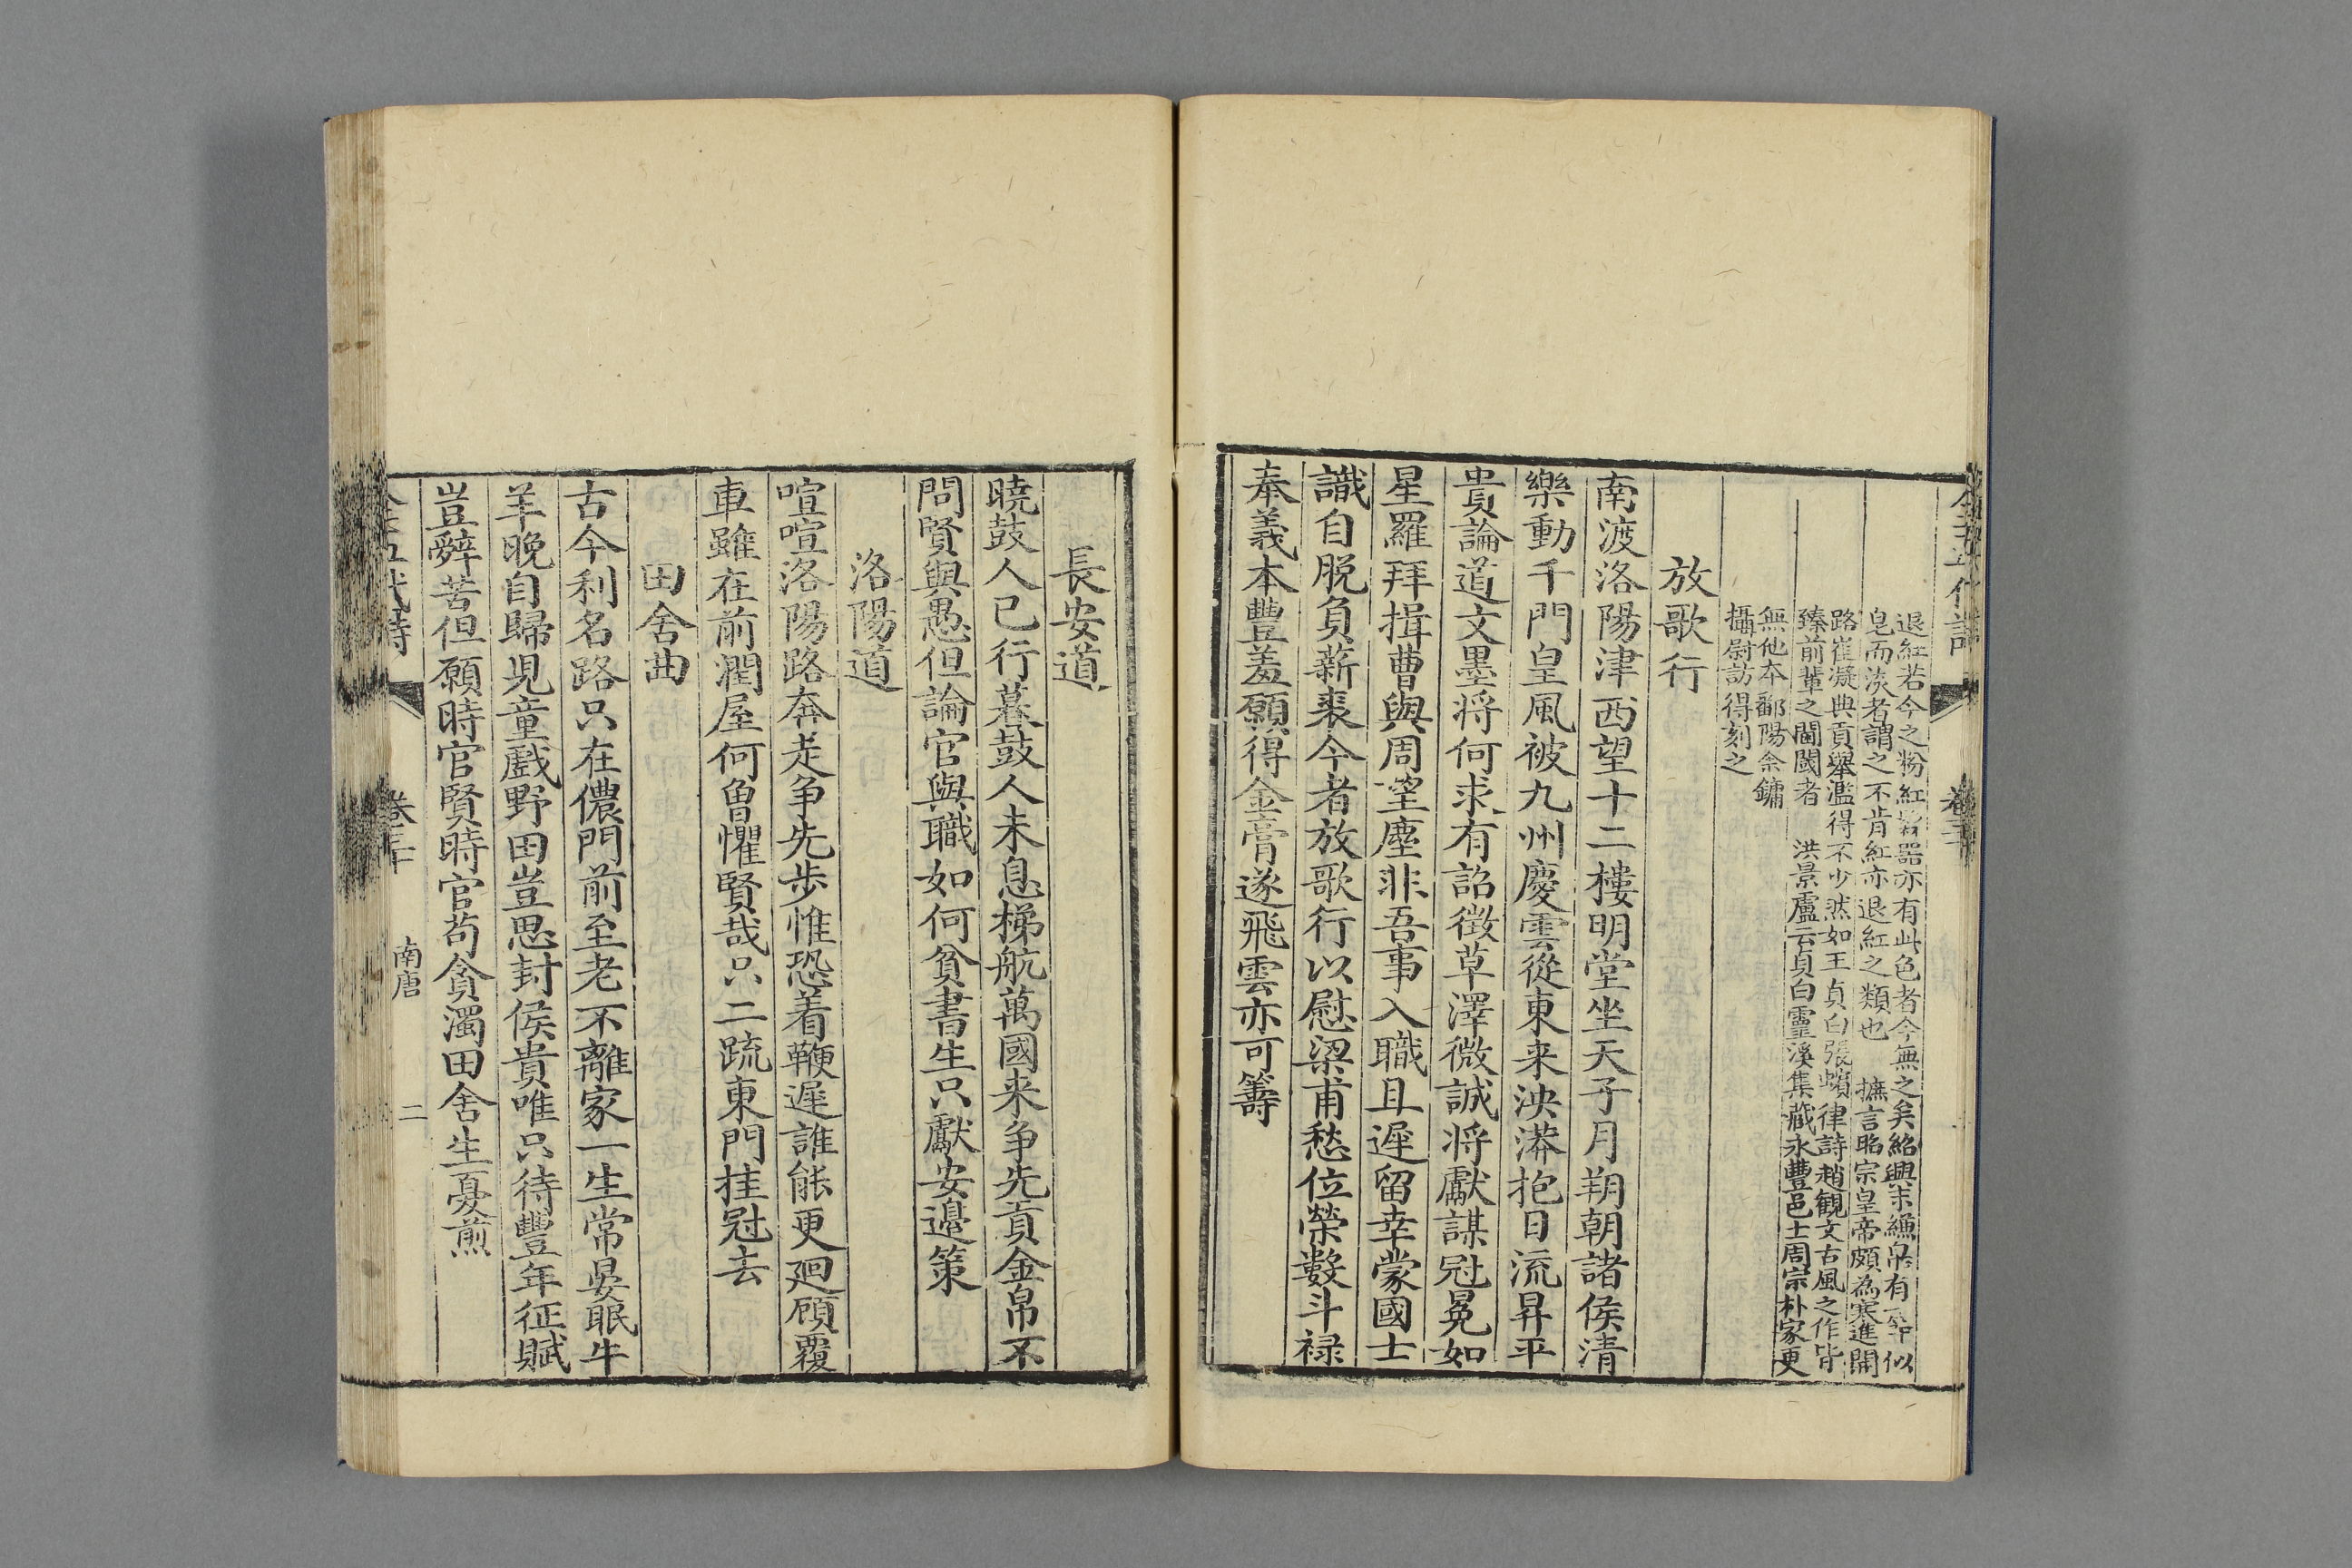 全五代詩
卷三
退紅若今之粉紅髹器亦有此色者今無之矣紹興末縑帛有一等似
皂而淡者謂之不肯紅亦退紅之類也 摭言昭宗皇帝頗為寒進開
路崔凝典貢舉濫得不少然如王貞白張蠙律詩趙觀文古風之作皆
臻前輩之閫閾者 洪景盧云貞白靈溪集藏永豐邑士周宗朴家更
無他本鄱陽余鏞
攝尉訪得刻之
放歌行
南渡洛陽津西望十二樓明堂坐天子月朔朝諸侯清
樂動千門皇風被九州慶雲從東来泱漭抱日流昇平
貴論道文墨将何求有詔徴草澤微誠将獻謀冠冕如
星羅拜揖曹與周望塵非吾事入職且遲留幸蒙國士
識自脱負薪裘今者放歌行以慰梁甫愁位榮數斗禄
奉義本豐羞願得金膏遂飛雲亦可籌
長安道
曉鼓人已行暮鼓人未息梯航萬國来争先貢金帛不
問賢與愚但論官與職如何貧書生只獻安邊策
洛陽道
喧喧洛陽路奔走争先步惟恐着鞭遲誰能更廻顧覆
車雖在前潤屋何曾懼賢哉只二疏東門挂冠去
田舍曲
古今利名路只在儂門前至老不離家一生常晏眠牛
羊晚自歸兒童戲野田豈思封侯貴唯只待豐年征賦
豈辭苦但願時官賢時官苟貪濁田舍生憂煎
五代詩
南唐
二